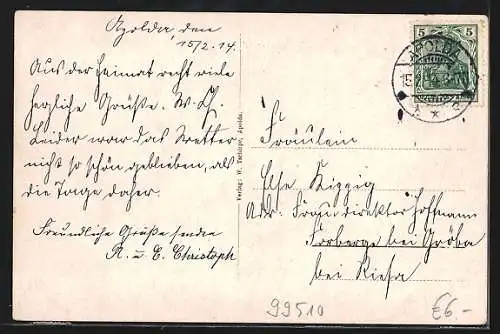 Apolda, den
15/2. 14.
Aus der Heimat recht viele
herzliche Grüße.
Leider war das Wetter
nicht so schön geblieben, als
die Tage daher.
Freundliche Grüße senden
R. u. E. Christoph
Verlag: W. Tschöpe, Apolda.
5 5
APOLDA
15
Fräulein
Else
Adr. Frau Direktor Hoffmann
Forberge bei Gröba
bei Riesa
99510
€6.-